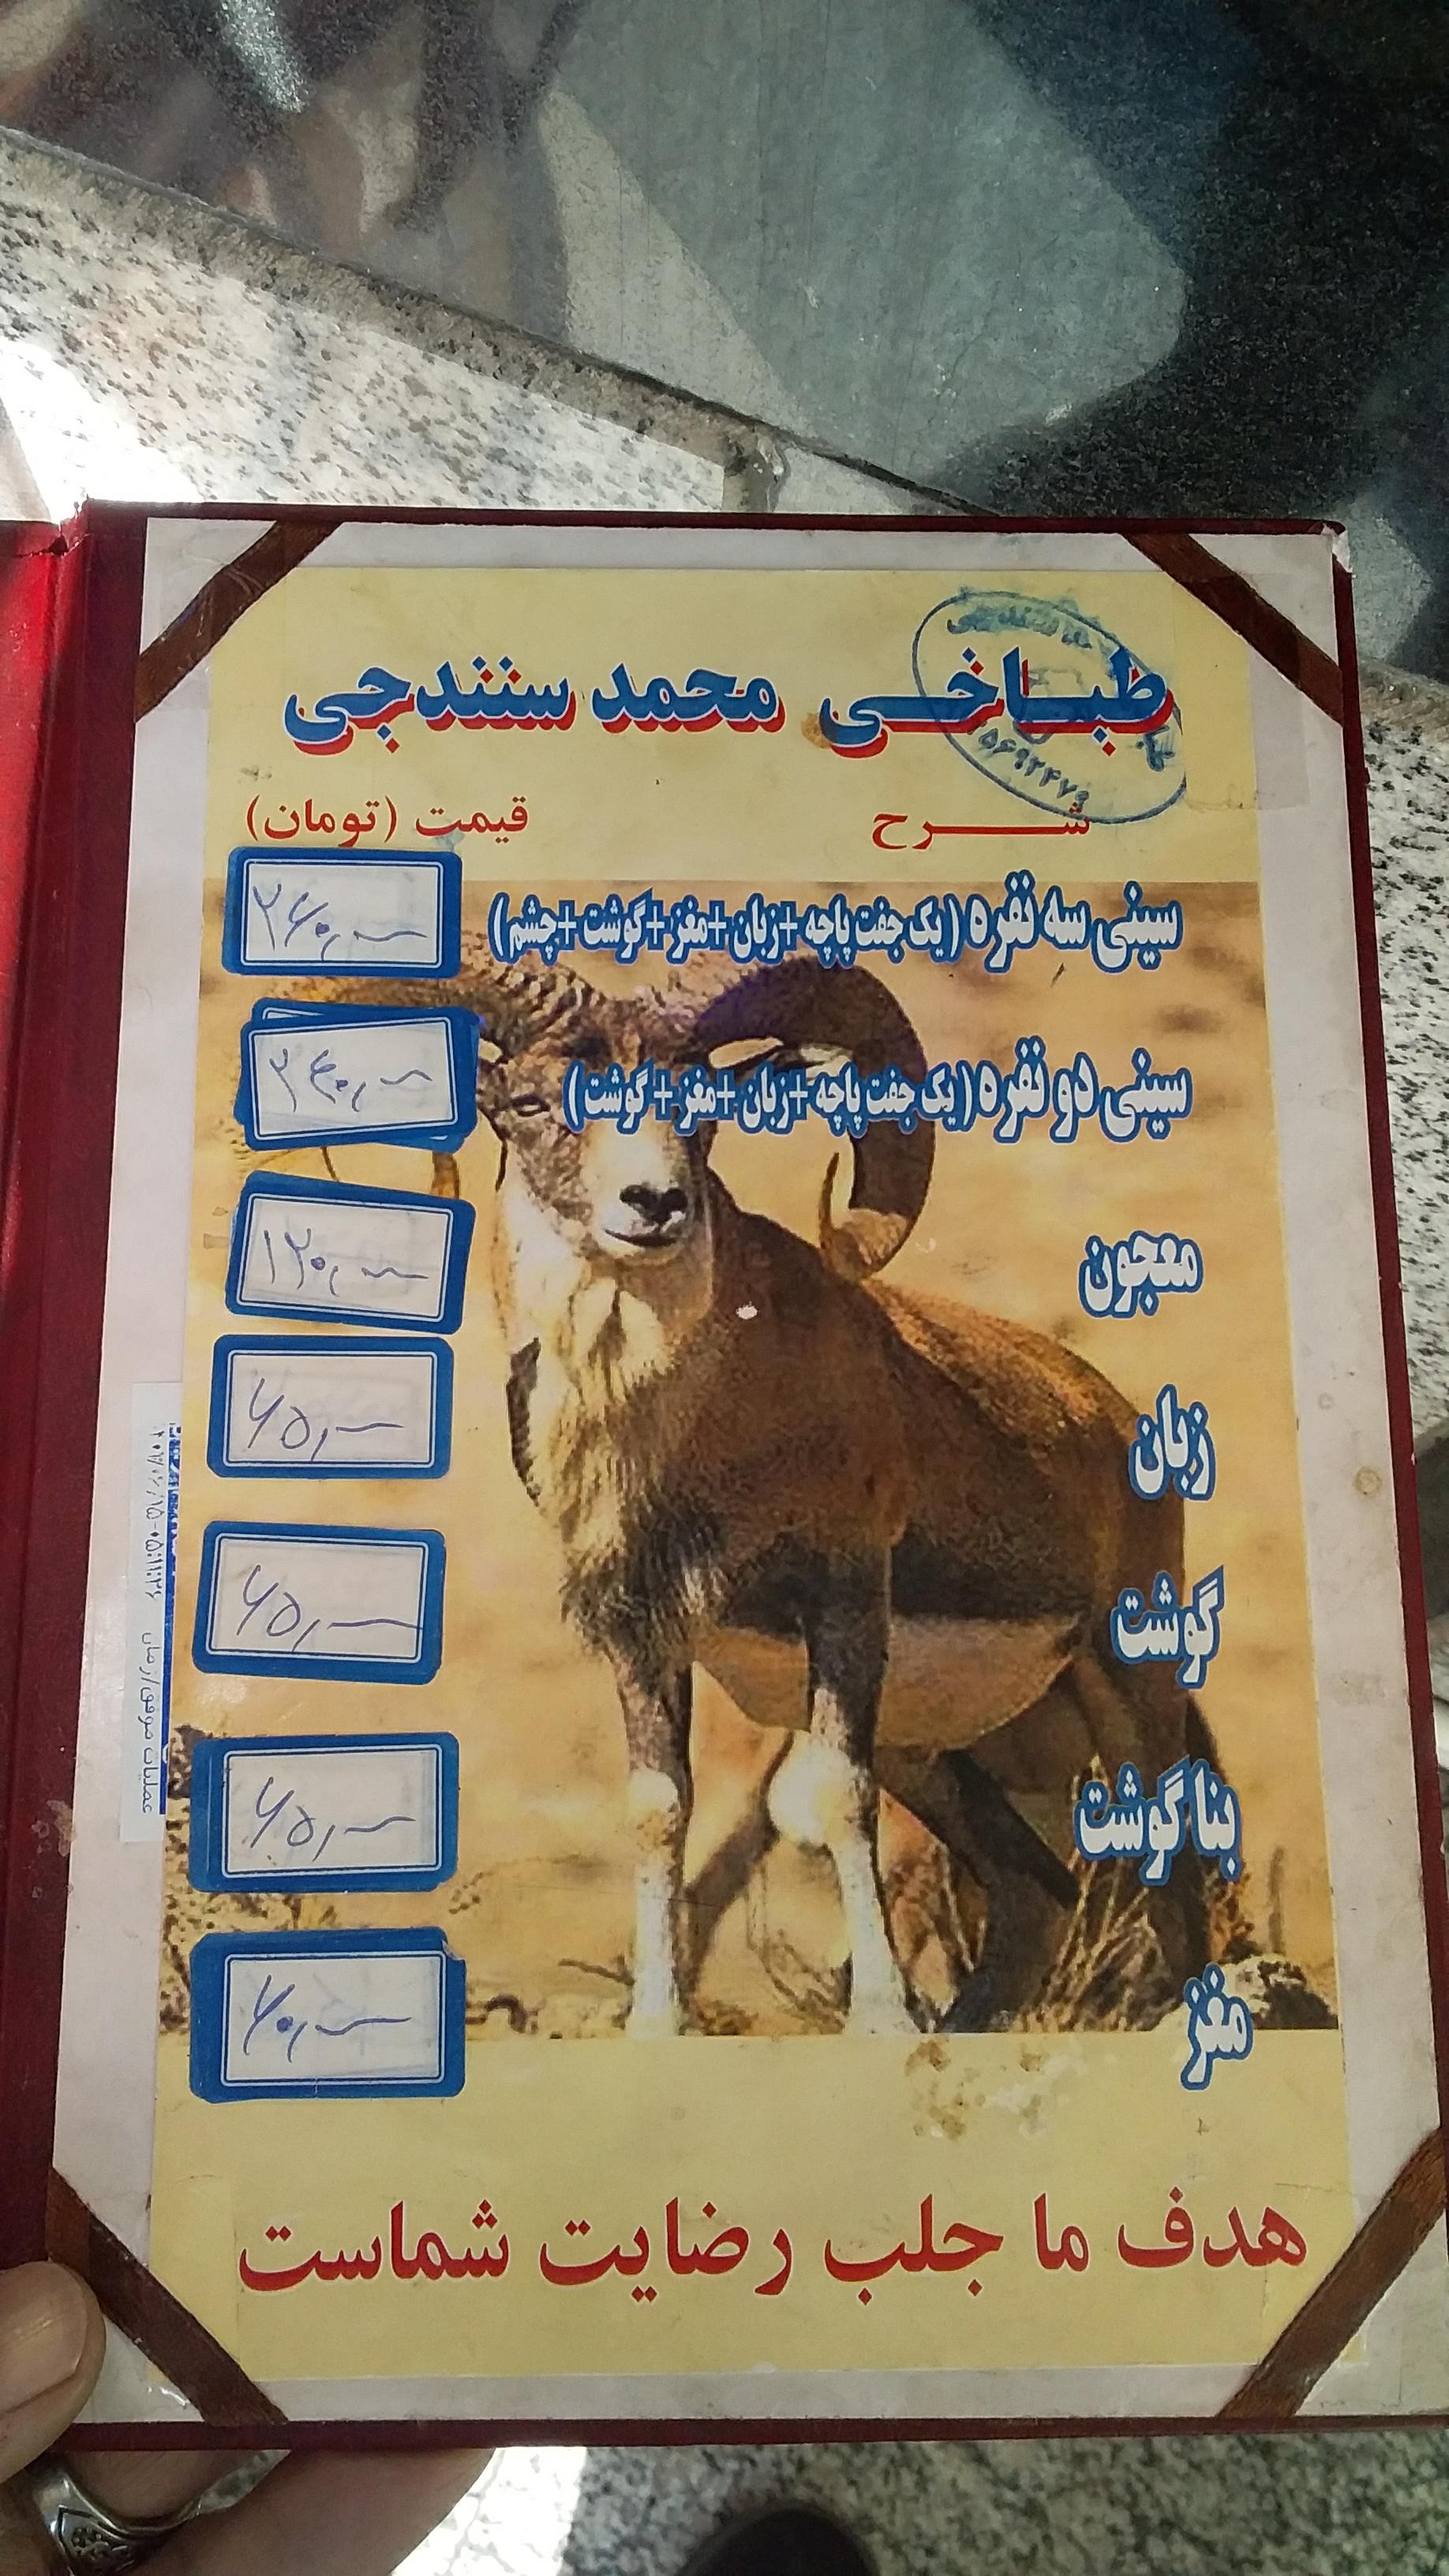 طباخی محمد سنندجی
۵۶۹۲۴۷۹
شرح قیمت (تومان)
سینی سه نفره (یک جفت پاچه+زبان+مغز+گوشت+چشم) ۲۶۰,۰۰۰
سینی دو نفره (یک جفت پاچه+زبان+مغز+گوشت) ۲۴۰,۰۰۰
معجون ۱۲۰,۰۰۰
زبان ۶۵,۰۰۰
گوشت ۶۵,۰۰۰
بنا گوشت ۶۵,۰۰۰
مغز ۶۰,۰۰۰
هدف ما جلب رضایت شماست
عملیات موفق/زمان